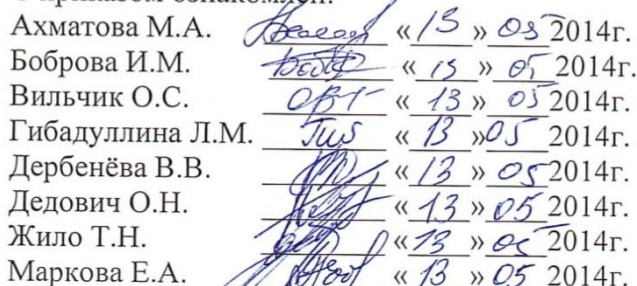 Ахматова М.А. «13» 05 2014г.
Боброва И.М. «13» 05 2014г.
Вильчик О.С. «13» 05 2014г.
Гибадуллина Л.М. «13» 05 2014г.
Дербенёва В.В. «13» 05 2014г.
Дедович О.Н. «13» 05 2014г.
Жило Т.Н. «13» 05 2014г.
Маркова Е.А. «13» 05 2014г.